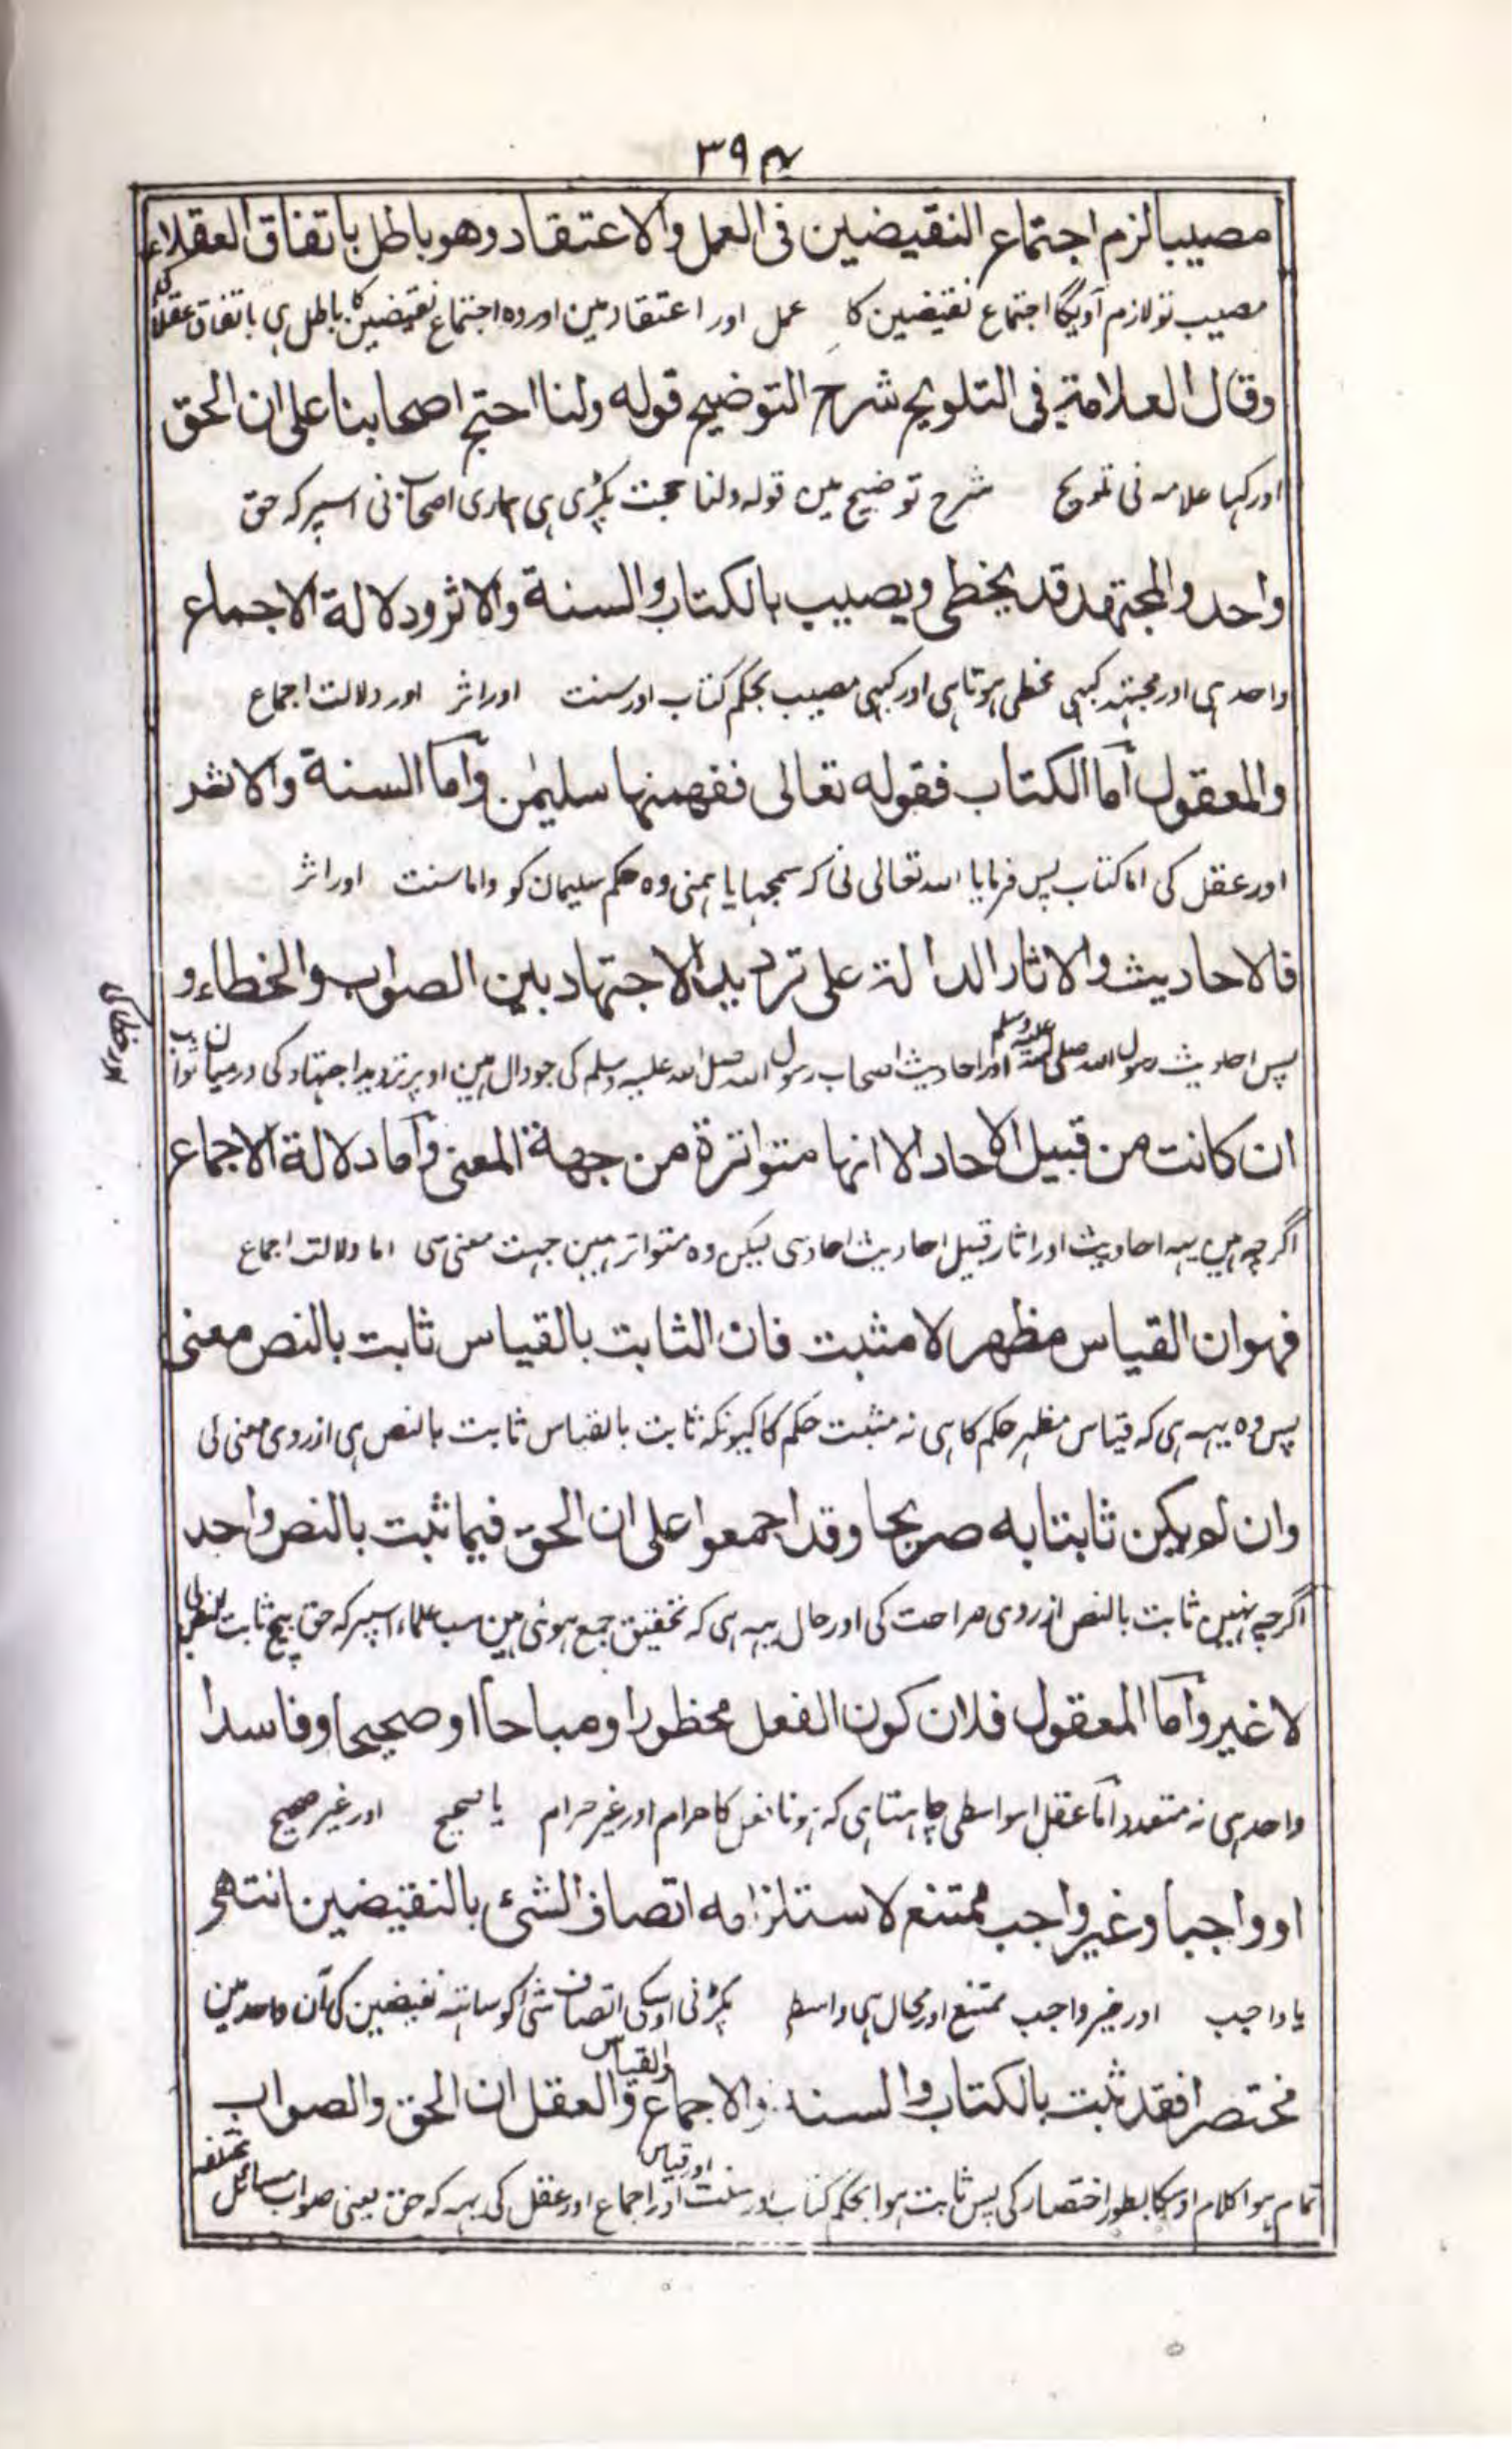 ٣٩٤
مصيبا لزم اجتماع النقيضين فى العمل والاعتقاد وهو باطل باتفاق العقلاء
مصیب تو لازم آویگا اجتماع نقیضین کا عمل اور اعتقاد مین اور وہ اجتماع نقیضین کا باطل ہی باتفاق عقلا کی
وقال العلامة فى التلويح شرح التوضيح قوله ولنا احتج اصحابنا على ان الحق
اور کہا علامہ نی تلویح شرح توضیح مین قولہ ولنا حجت پکڑی ہی ہماری اصحاب نی اسپر کہ حق
واحد والمجتهد قد يخطى ويصيب بالكتاب والسنة والاثر ودلالة الاجماع
واحد ہی اور مجتہد کبہی مخطی ہوتا ہی اور کبہی مصیب بحکم کتاب اور سنت اور اثر اور دلالت اجماع
والمعقول اما الكتاب فقوله تعالى ففهمنها سليمٰن واما السنة والاثر
اور عقل کی اما کتاب پس فرمایا اللہ تعالی نی کہ سمجہایا ہمنی وہ حکم سلیمان کو واما سنت اور اثر
فالاحاديث والاثار الدالة على ترديد الاجتهاد بين الصواب والخطاء و
پس احادیث رسول اللہ صلی اللہ علیہ وسلم اور احادیث اصحاب رسول اللہ صلی اللہ علیہ وسلم کی جو دال ہین اوپر تردید اجتہاد کی درمیان صواب
اور خطا کی
ان كانت من قبيل الاحاد الا انها متواترة من جهة المعنى واما دلالة الاجماع
اگرچہ ہین یہہ احادیث اور اثار قبیل احادیث احاد سی لیکن وہ متواتر ہین جہت معنی سی اما دلالت اجماع
فهو ان القياس مظهر لا مثبت فان الثابت بالقياس ثابت بالنص معنى
پس وہ یہہ ہی کہ قیاس مظہر حکم کا ہی نہ مثبت حکم کا کیونکہ ثابت بالقیاس ثابت بالنص ہی از روی معنی کی
وان لم يكن ثابتا به صريحا وقد اجمعوا على ان الحق فيما ثبت بالنص واحد
اگرچہ نہین ثابت بالنص از روی صراحت کی اور حال یہہ ہی کہ تحقیق جمع ہوئی ہین سب علماء اسپر کہ حق بیچ ثابت بالنص کی
لا غير واما المعقول فلان كون الفعل محظورا ومباحا او صحيحا وفاسدا
واحد ہی نہ متعدد اما عقل اسواسطی چاہتا ہی کہ ہونا فعل کا حرام اور غیر حرام یا صحیح اور غیر صحیح
او واجبا وغير واجب ممتنع لاستلزامه اتصاف الشئ بالنقيضين انتهى
یا واجب اور غیر واجب ممتنع اور محال ہی واسطی پکڑنی اوسکی اتصاف شی کو ساتہہ نقیضین کی آن واحد مین
مختصرا فقد ثبت بالكتاب والسنة والاجماع والقياس والعقل ان الحق والصواب
تمام ہوا کلام اوسکا بطور اختصار کی پس ثابت ہوا بحکم کتاب اور سنت اور اجماع اور قیاس اور عقل کی یہہ کہ حق یعنی صواب مسائل مختلفہ